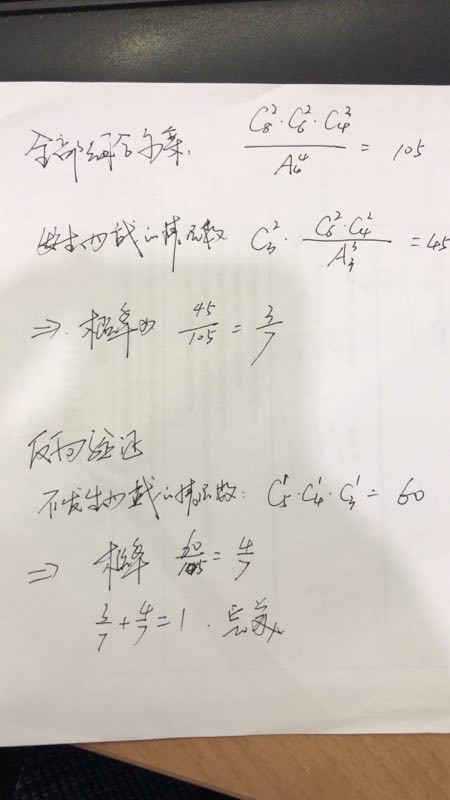 全部组合方案: C₈²·C₆²·C₄² / A₄⁴ = 105
发生内战的情况数 C₃²· C₆²·C₄² / A₃³ = 45
⇒ 概率为 45/105 = 3/7
反向验证
不发生内战的情况数: C₅¹·C₄¹·C₃¹ = 60
⇒ 概率 60/105 = 4/7
3/7 + 4/7 = 1. 完美